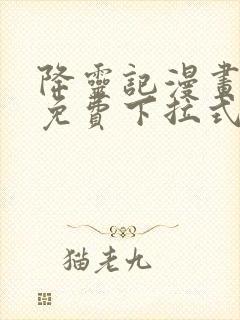 降靈記漫畫
免費下拉式
猫老九